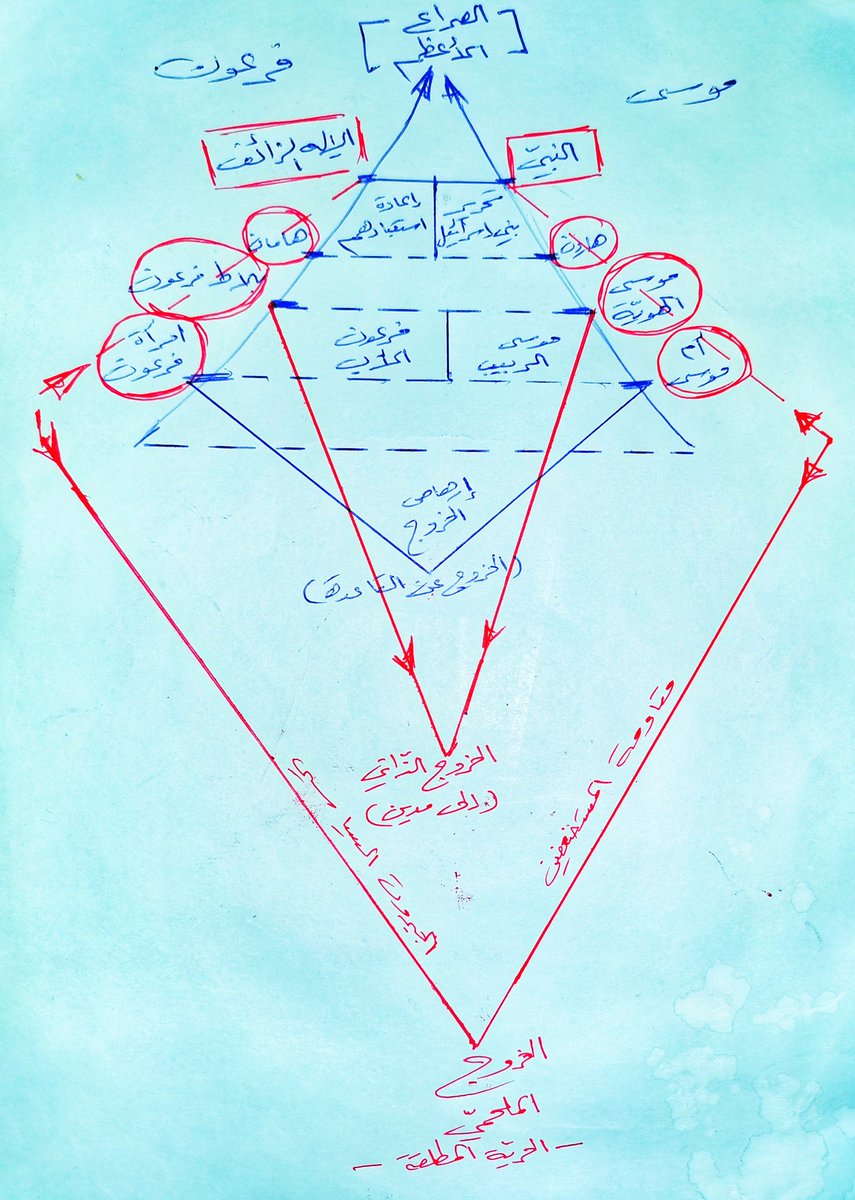 [الصراع
الأعظم]
موسى
فرعون
النبيّ
الإله الزائف
تحرير
بني إسرائيل
وإعادة
استعبادهم
هارون
هامان
موسى
الهويّة
بلاط فرعون
موسى
الربيب
فرعون
الأب
أم
موسى
امرأة
فرعون
إرهاص
الخروج
(الخروج عن القاعدة)
الخروج الذاتي
(إلى مدين)
مقاومة المستضعفين
الخروج
الملحميّ
- الحريّة المطلقة -